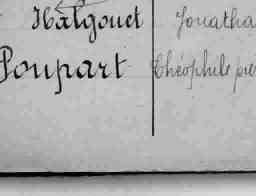 Halgouet Jonatha
Poupart Théophile pie